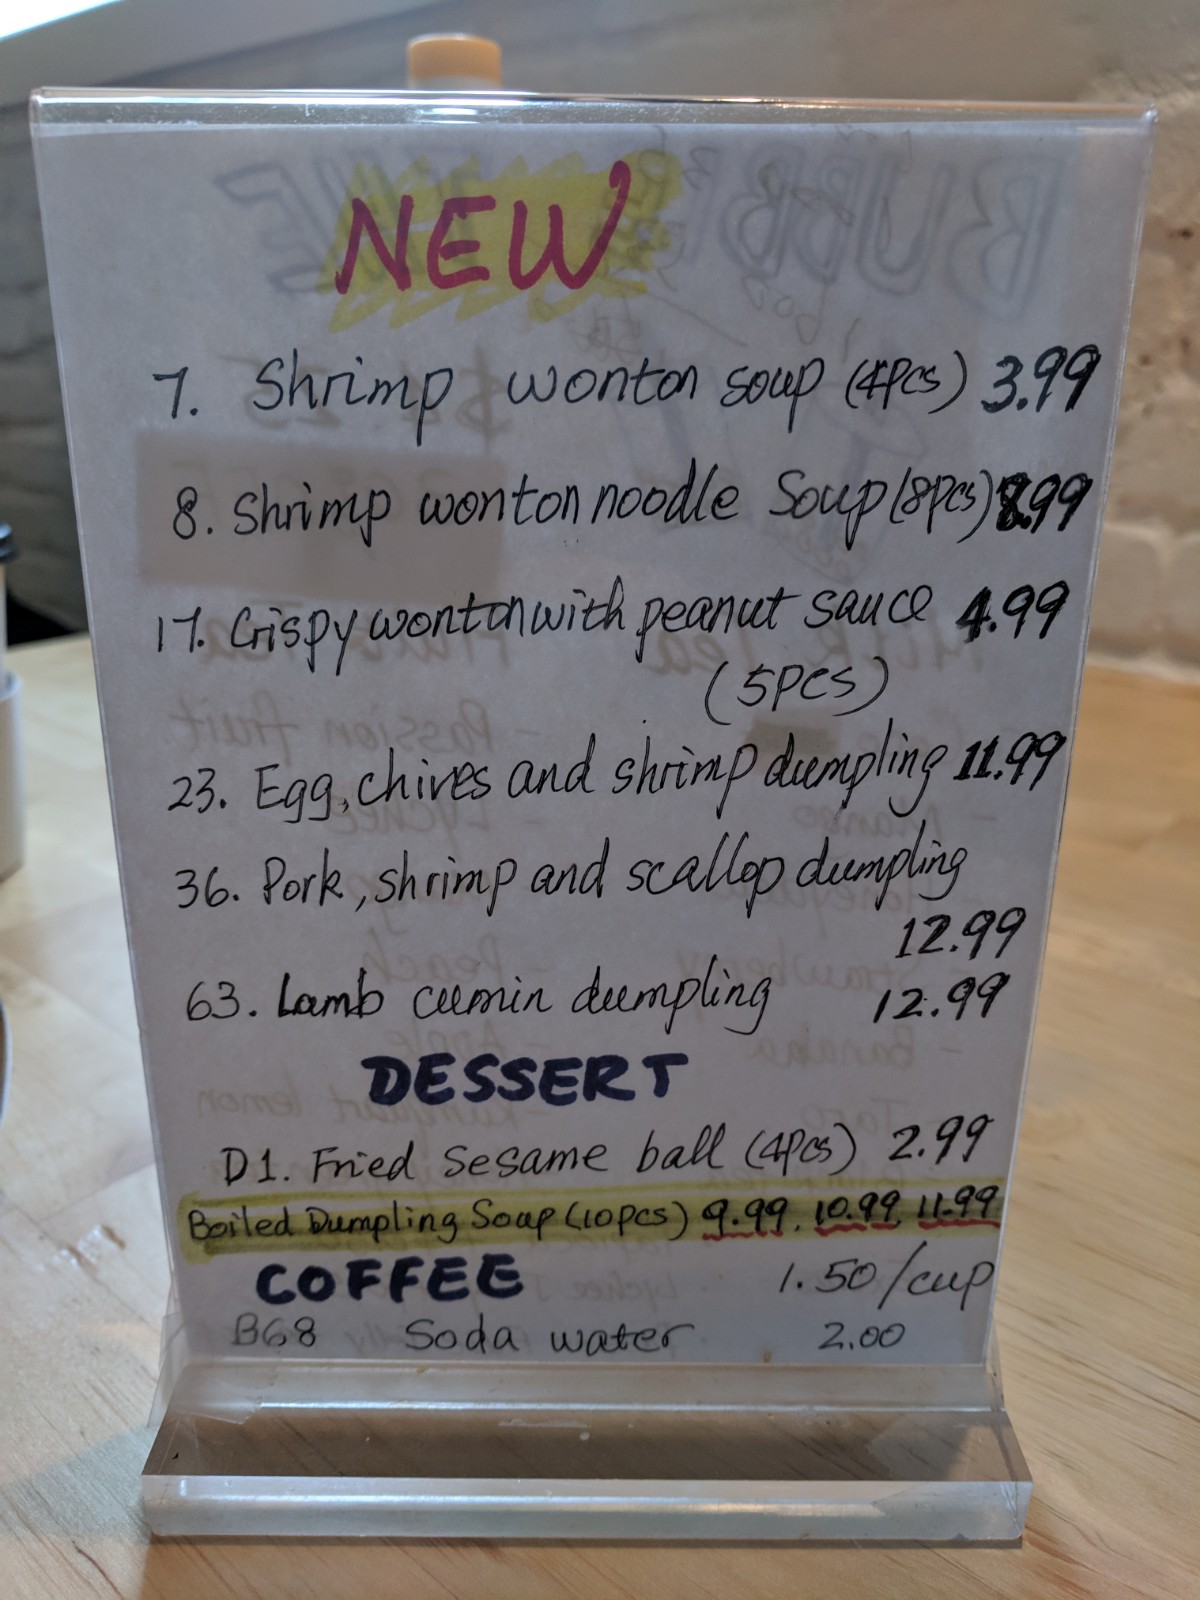 NEW
7. Shrimp wonton soup (4pcs) 3.99
8. Shrimp wonton noodle Soup (8pcs) 8.99
17. Crispy wonton with peanut sauce 4.99
(5PCS)
23. Egg, chives and shrimp dumpling 11.99
36. Pork, shrimp and scallop dumpling
12.99
63. Lamb cumin dumpling 12.99
DESSERT
D1. Fried Sesame ball (4pcs) 2.99
Boiled Dumpling Soup (10pcs) 9.99, 10.99, 11.99
COFFEE 1.50/cup
B68 Soda water 2.00